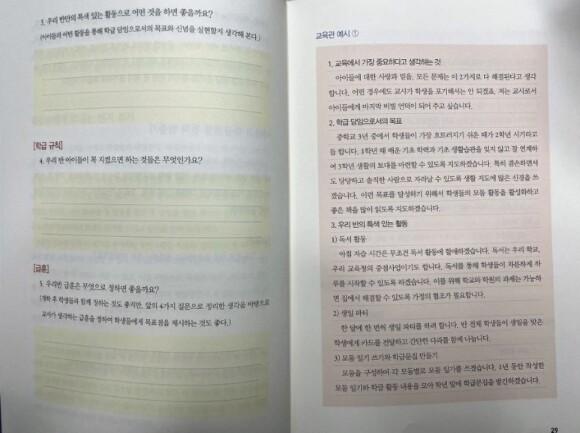 3. 우리 반만의 특색 있는 활동으로 어떤 것을 하면 좋을까요?
(아이들과 어떤 활동을 통해 학급 담임으로서의 목표와 신념을 실현할지 생각해 본다.)
[학급 규칙]
4. 우리 반 아이들이 꼭 지켰으면 하는 것들은 무엇인가요?
[급훈]
5. 우리반 급훈은 무엇으로 정하면 좋을까요?
(개학 후 학생들과 함께 정하는 것도 좋지만, 앞의 4가지 질문으로 정리한 생각을 바탕으로
교사가 생각하는 급훈을 정하여 학생들에게 목표점을 제시하는 것도 좋다.)
교육관 예시 ①
1. 교육에서 가장 중요하다고 생각하는 것
아이들에 대한 사랑과 믿음, 모든 문제는 이 2가지로 다 해결된다고 생각
합니다. 어떤 경우에도 교사가 학생을 포기해서는 안 되겠죠. 저는 교사로서
아이들에게 마지막 비빌 언덕이 되어 주고 싶습니다.
2. 학급 담임으로서의 목표
중학교 3년 중에서 학생들이 가장 흐트러지기 쉬운 때가 2학년 시기라고
들 합니다. 1학년 때 배운 기초 학력과 기초 생활습관을 잊지 않고 잘 연계하
여 3학년 생활의 토대를 마련할 수 있도록 지도하겠습니다. 특히 겸손하면서
도 당당하고 솔직한 사람으로 자라날 수 있도록 생활 지도에 많은 신경을 쓰
겠습니다. 이런 목표를 달성하기 위해서 학생들의 모둠 활동을 활성화하고
좋은 책을 많이 읽도록 지도하겠습니다.
3. 우리 반의 특색 있는 활동
1) 독서 활동
아침 자습 시간은 무조건 독서 활동에 할애하겠습니다. 독서는 우리 학교,
우리 교육청의 중점사업이기도 합니다. 독서를 통해 학생들이 차분하게 하
루를 시작할 수 있도록 하겠습니다. 이를 위해 학교와 학원의 과제는 가능하
면 집에서 해결할 수 있도록 가정의 협조가 필요합니다.
2) 생일 파티
한 달에 한 번씩 생일 파티를 하려 합니다. 반 전체 학생들이 생일을 맞은
학생에게 카드를 전달하고 간단한 다과를 함께 나눕니다.
3) 모둠 일기 쓰기와 학급문집 만들기
모둠을 구성하여 각 모둠별로 모둠 일기를 쓰겠습니다. 1년 동안 작성한
모둠 일기와 학급 활동 내용을 모아 학년 말에 학급문집을 발간하겠습니다.
29